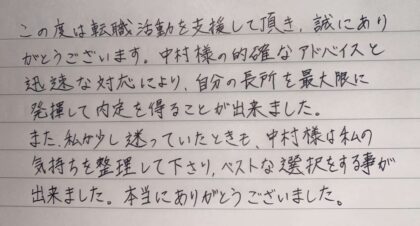 この度は転職活動を支援して頂き、誠にあり
がとうございます。中村様の的確なアドバイスと
迅速な対応により、自分の長所を最大限に
発揮して内定を得ることが出来ました。
また、私が少し迷っていたときも、中村様は私の
気持ちを整理して下さり、ベストな選択をする事が
出来ました。本当にありがとうございました。